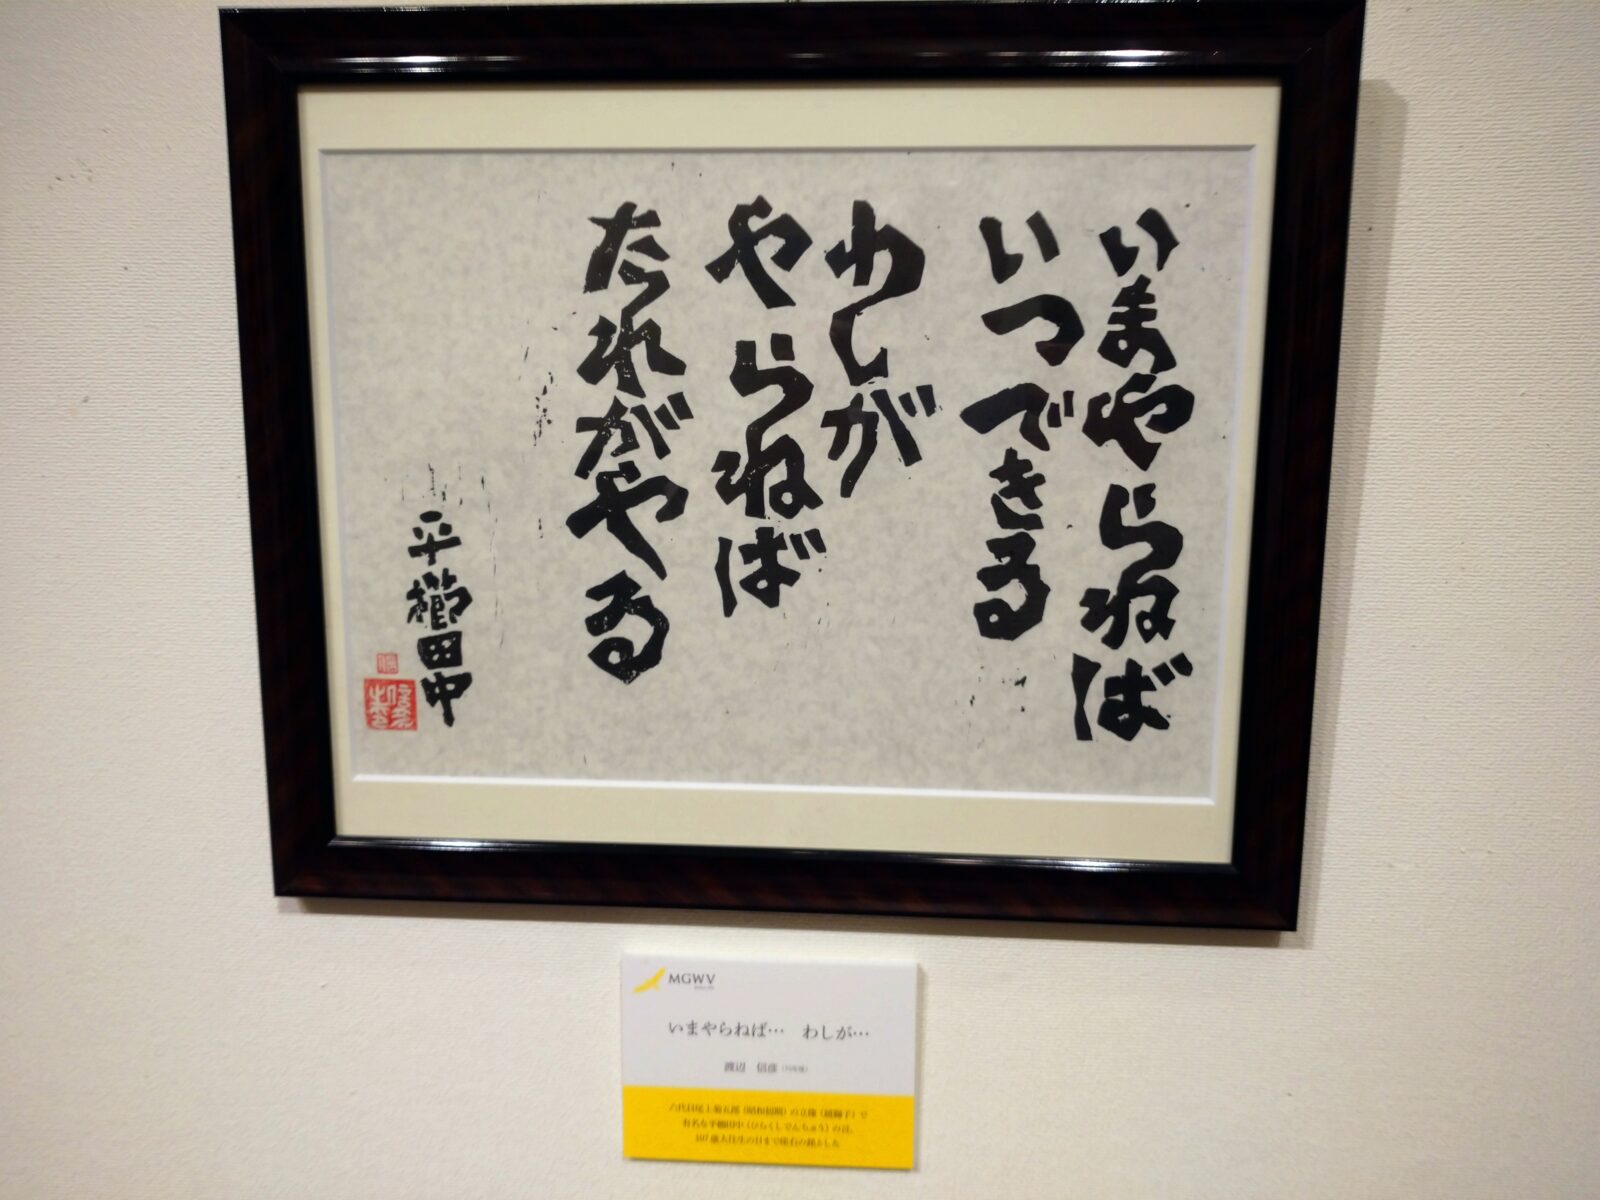 いまやらねば
いつできる
わしが
やらねば
たれがやる
平櫛田中
MGWV
いまやらねば… わしが…
渡辺 信彦
六代目尾上菊五郎(昭和初期)の立像(鏡獅子)で
有名な平櫛田中(ひらくしでんちゅう)の言。
107歳大往生の日まで座右の銘とした